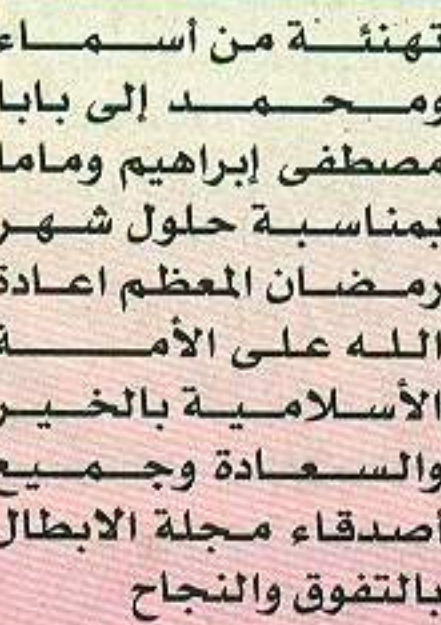 تهنئة من أسماء
ومحمد إلى بابا
مصطفى إبراهيم وماما
بمناسبة حلول شهر
رمضان المعظم اعادة
الله على الأمة
الأسلامية بالخير
والسعادة وجميع
أصدقاء مجلة الابطال
بالتفوق والنجاح